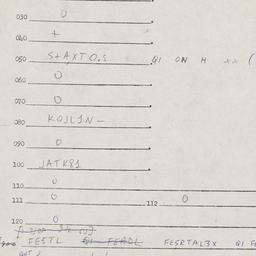 030 0
040 +
050 S+AXTO.S QI ON H xx (
060 0
070 0
080 KOJLIN-
090 0
100 JATK81
110 0
111 0 112 0
120 0
FESTL FESRTAL3X QI